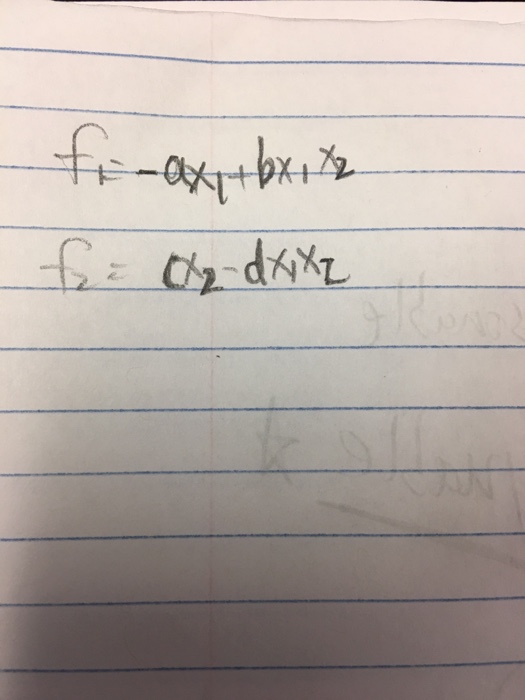 f₁ = -ax₁ + bx₁x₂
f₂ = cx₂ - dx₁x₂